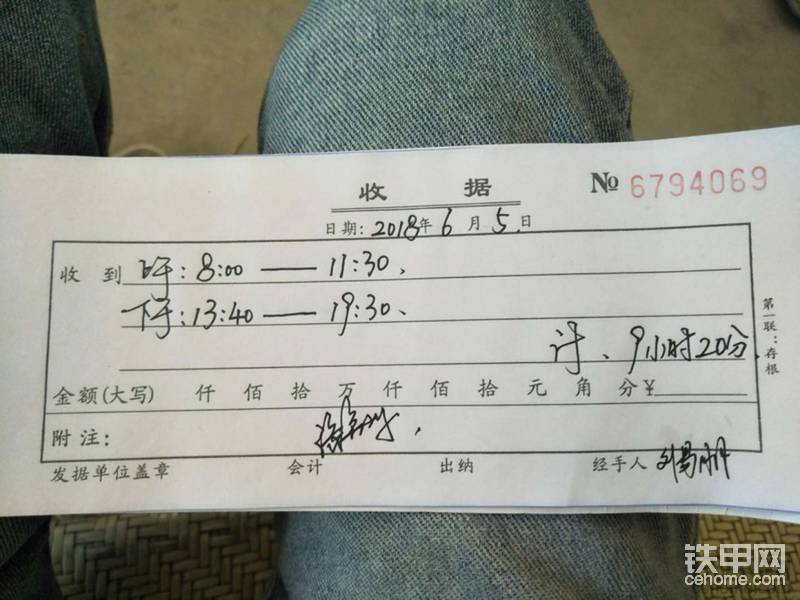 收 据
№ 6794069
日期: 2018年 6月 5日
收到 上午: 8:00 — 11:30.
下午: 13:40 — 19:30.
计、9小时20分
金额(大写) 仟 佰 拾 万 仟 佰 拾 元 角 分 ¥
附注:
发据单位盖章 会计 出纳 经手人
第一联:存根
铁甲网
cehome.com